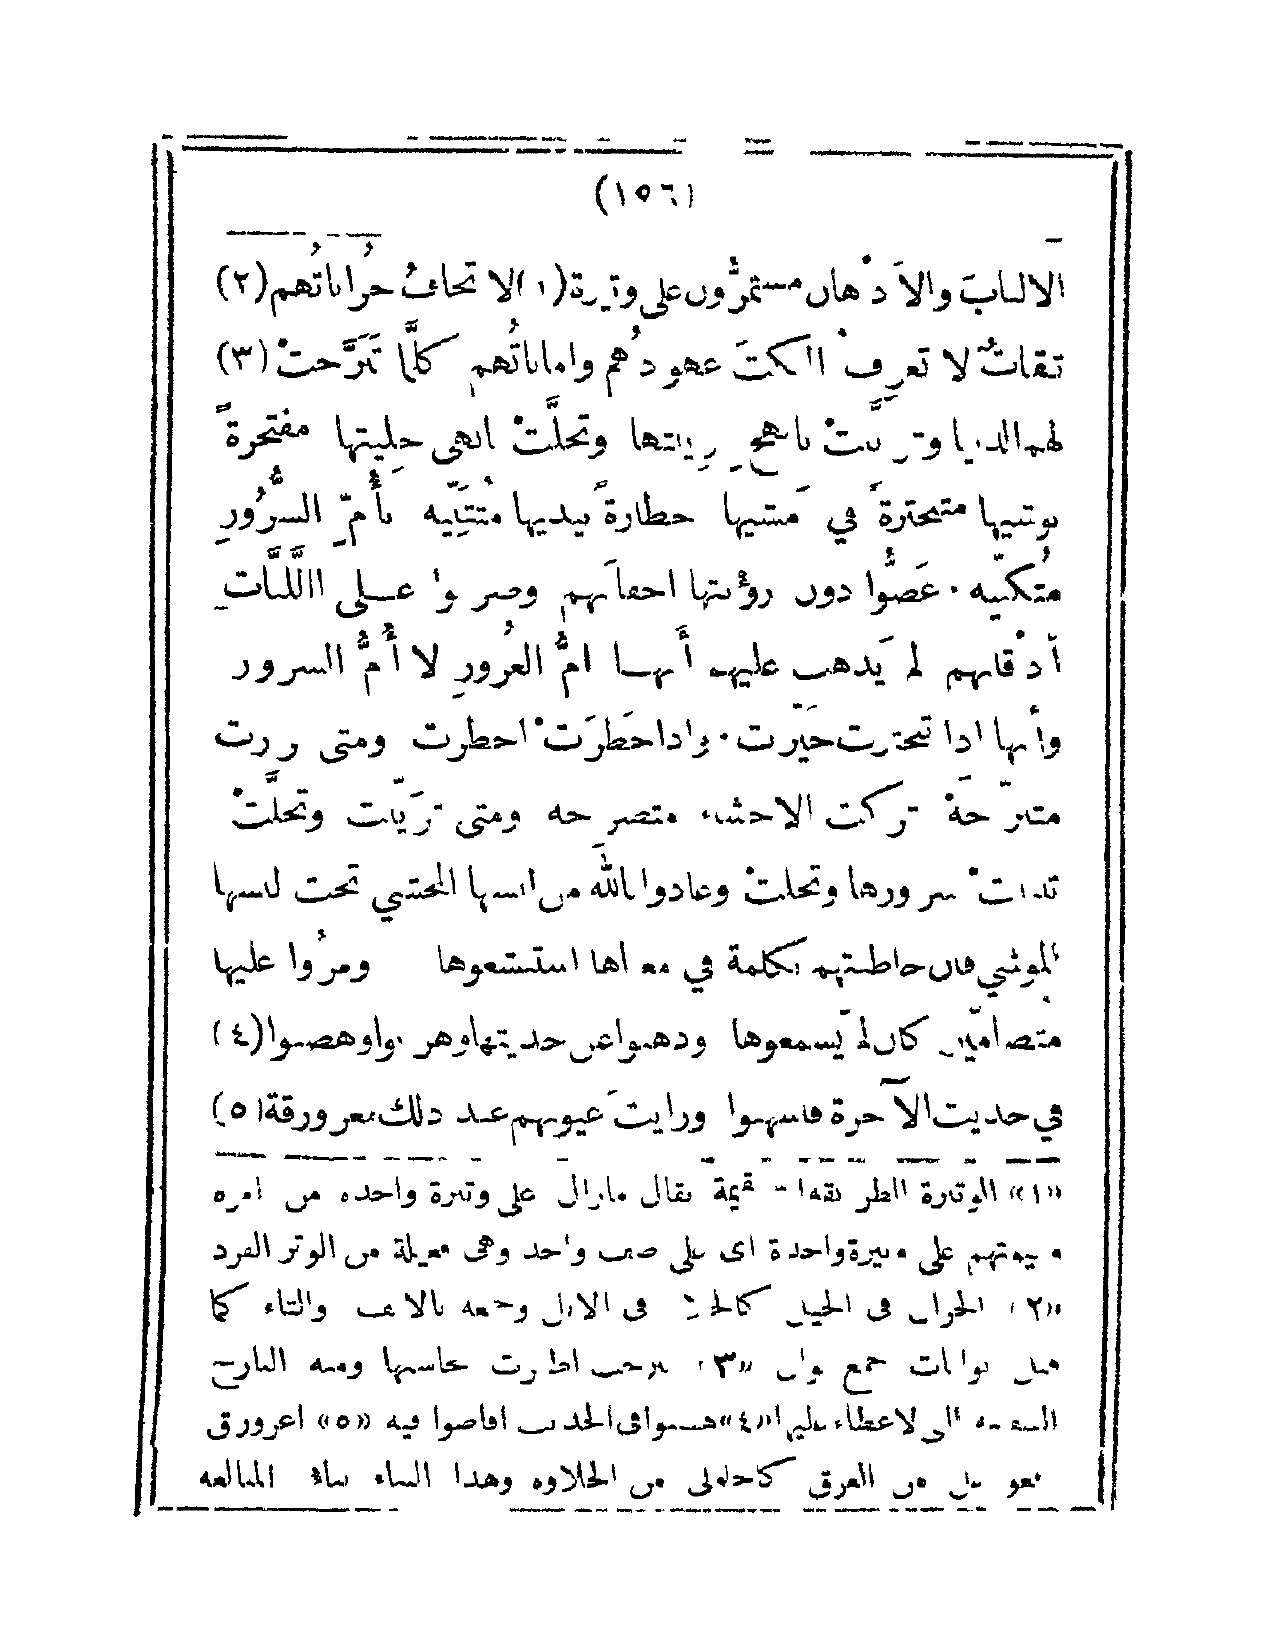 (١٥٦)
الالبابَ والاَذْهان مستمرُّون على وتيرة(١)لا تخافُ حُراناتُهم(٢)
ثقاتٌ لا تعرفْ النكثَ عهودُهم واماناتُهم كلَّما تَبَرَّجتْ(٣)
لهم الدنيا وتزينتْ بابهجِ زينتها وتحلَّتْ ابهى حليتها مفتخرةً
بوشيها متبخترةً في مَشيها خطارةً بيديها مُتَثَنِّيه بأُمِّ السُّرُورِ
مُتكنِّيه · غَضُّوا دون رؤيتها اجفانَهم وضربوا عــلى اللَّبَّاتِ
أذْقانهم لم يَذهب عليهم أَنهــا أمُّ الغُرورِ لا أُمُّ السرور
وأنها اذا تبخترت حَيَّرت · واذا خَطَرَتْ اخطرت ومتى برزت
متبرّجَةْ تركت الاحشاء متضرجه ومتى تزيّنت وتحلَّتْ
تبدلتْ سرورها وتخلتْ وعاذوا باللهِ من انسها المختبي تحت لبسها
الموشي فان خاطبتهم بكلمة في معناها استبشعوها ومرُّوا عليها
مُتصامّينَ كأن لم يَسمعوها وذهبوا عن حديثها وهربوا وهضبوا(٤)
في حديث الآخرة فاسهبوا ورايتَ عيونهم عند ذلك مغرورقة(٥)
«١» الوتيرة الطريقة المستقيمة يقال مازال على وتيرة واحده من امره
وبيوتهم على وتيرة واحدة اى على صف واحد وهى فعيلة من الوتر الفرد
«٢» الحران فى الخيل كالخلا فى الابل وجمعه بالالف والتاء كما
قيل بوانات جمع بوان «٣» تبرجت اظهرت محاسنها ومنه البارج
«٤» هضبوا فى الحديث افاضوا فيه «٥» اغرورق
افعوعل من الغرق كاحلولى من الحلاوه وهذا البناء بناء المبالغه